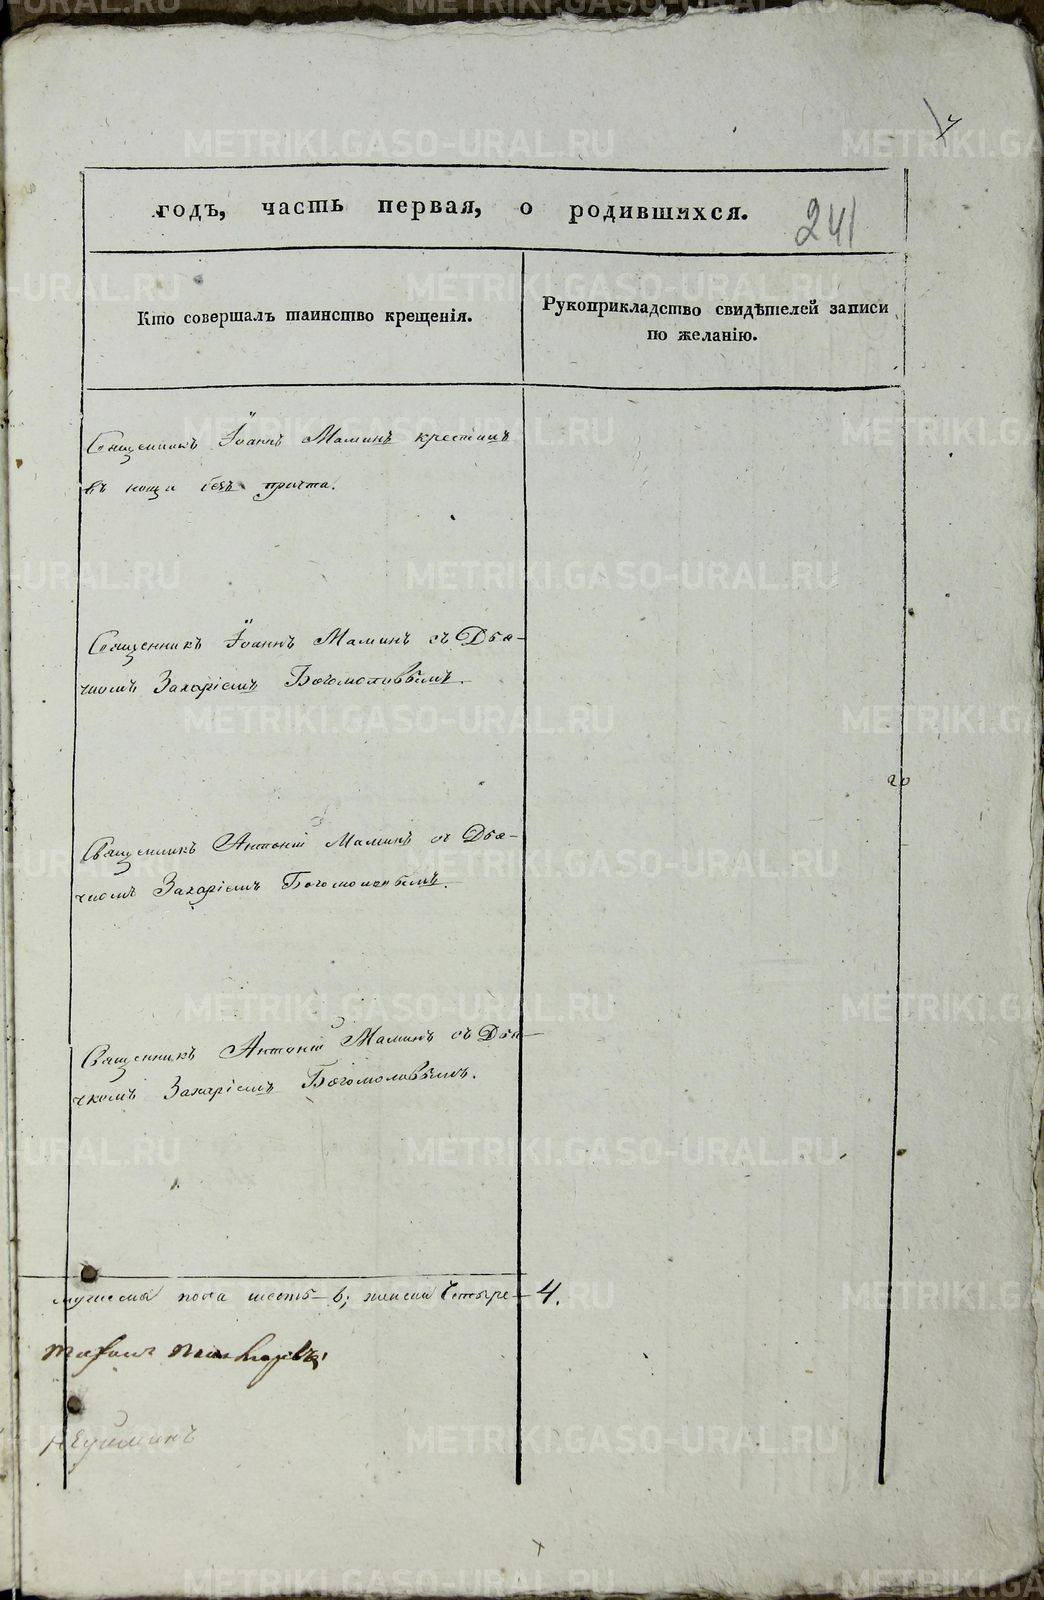 годъ, часть первая, о родившихся.
241
Кто совершалъ таинство крещенія.
Рукоприкладство свидѣтелей записи
по желанію.
Священникъ Іоаннъ Маминъ крестилъ
безъ причта.
Священникъ Іоаннъ Маминъ съ Дья-
чкомъ Захаріемъ Богомоловымъ.
Священникъ Антоній Маминъ съ Дья-
чкомъ Захаріемъ Богомоловымъ.
Священникъ Антоній Маминъ съ Дья-
чкомъ Захаріемъ Богомоловымъ.
пола шесть – 6; женска Четыре – 4.
METRIKI.GASO-URAL.RU